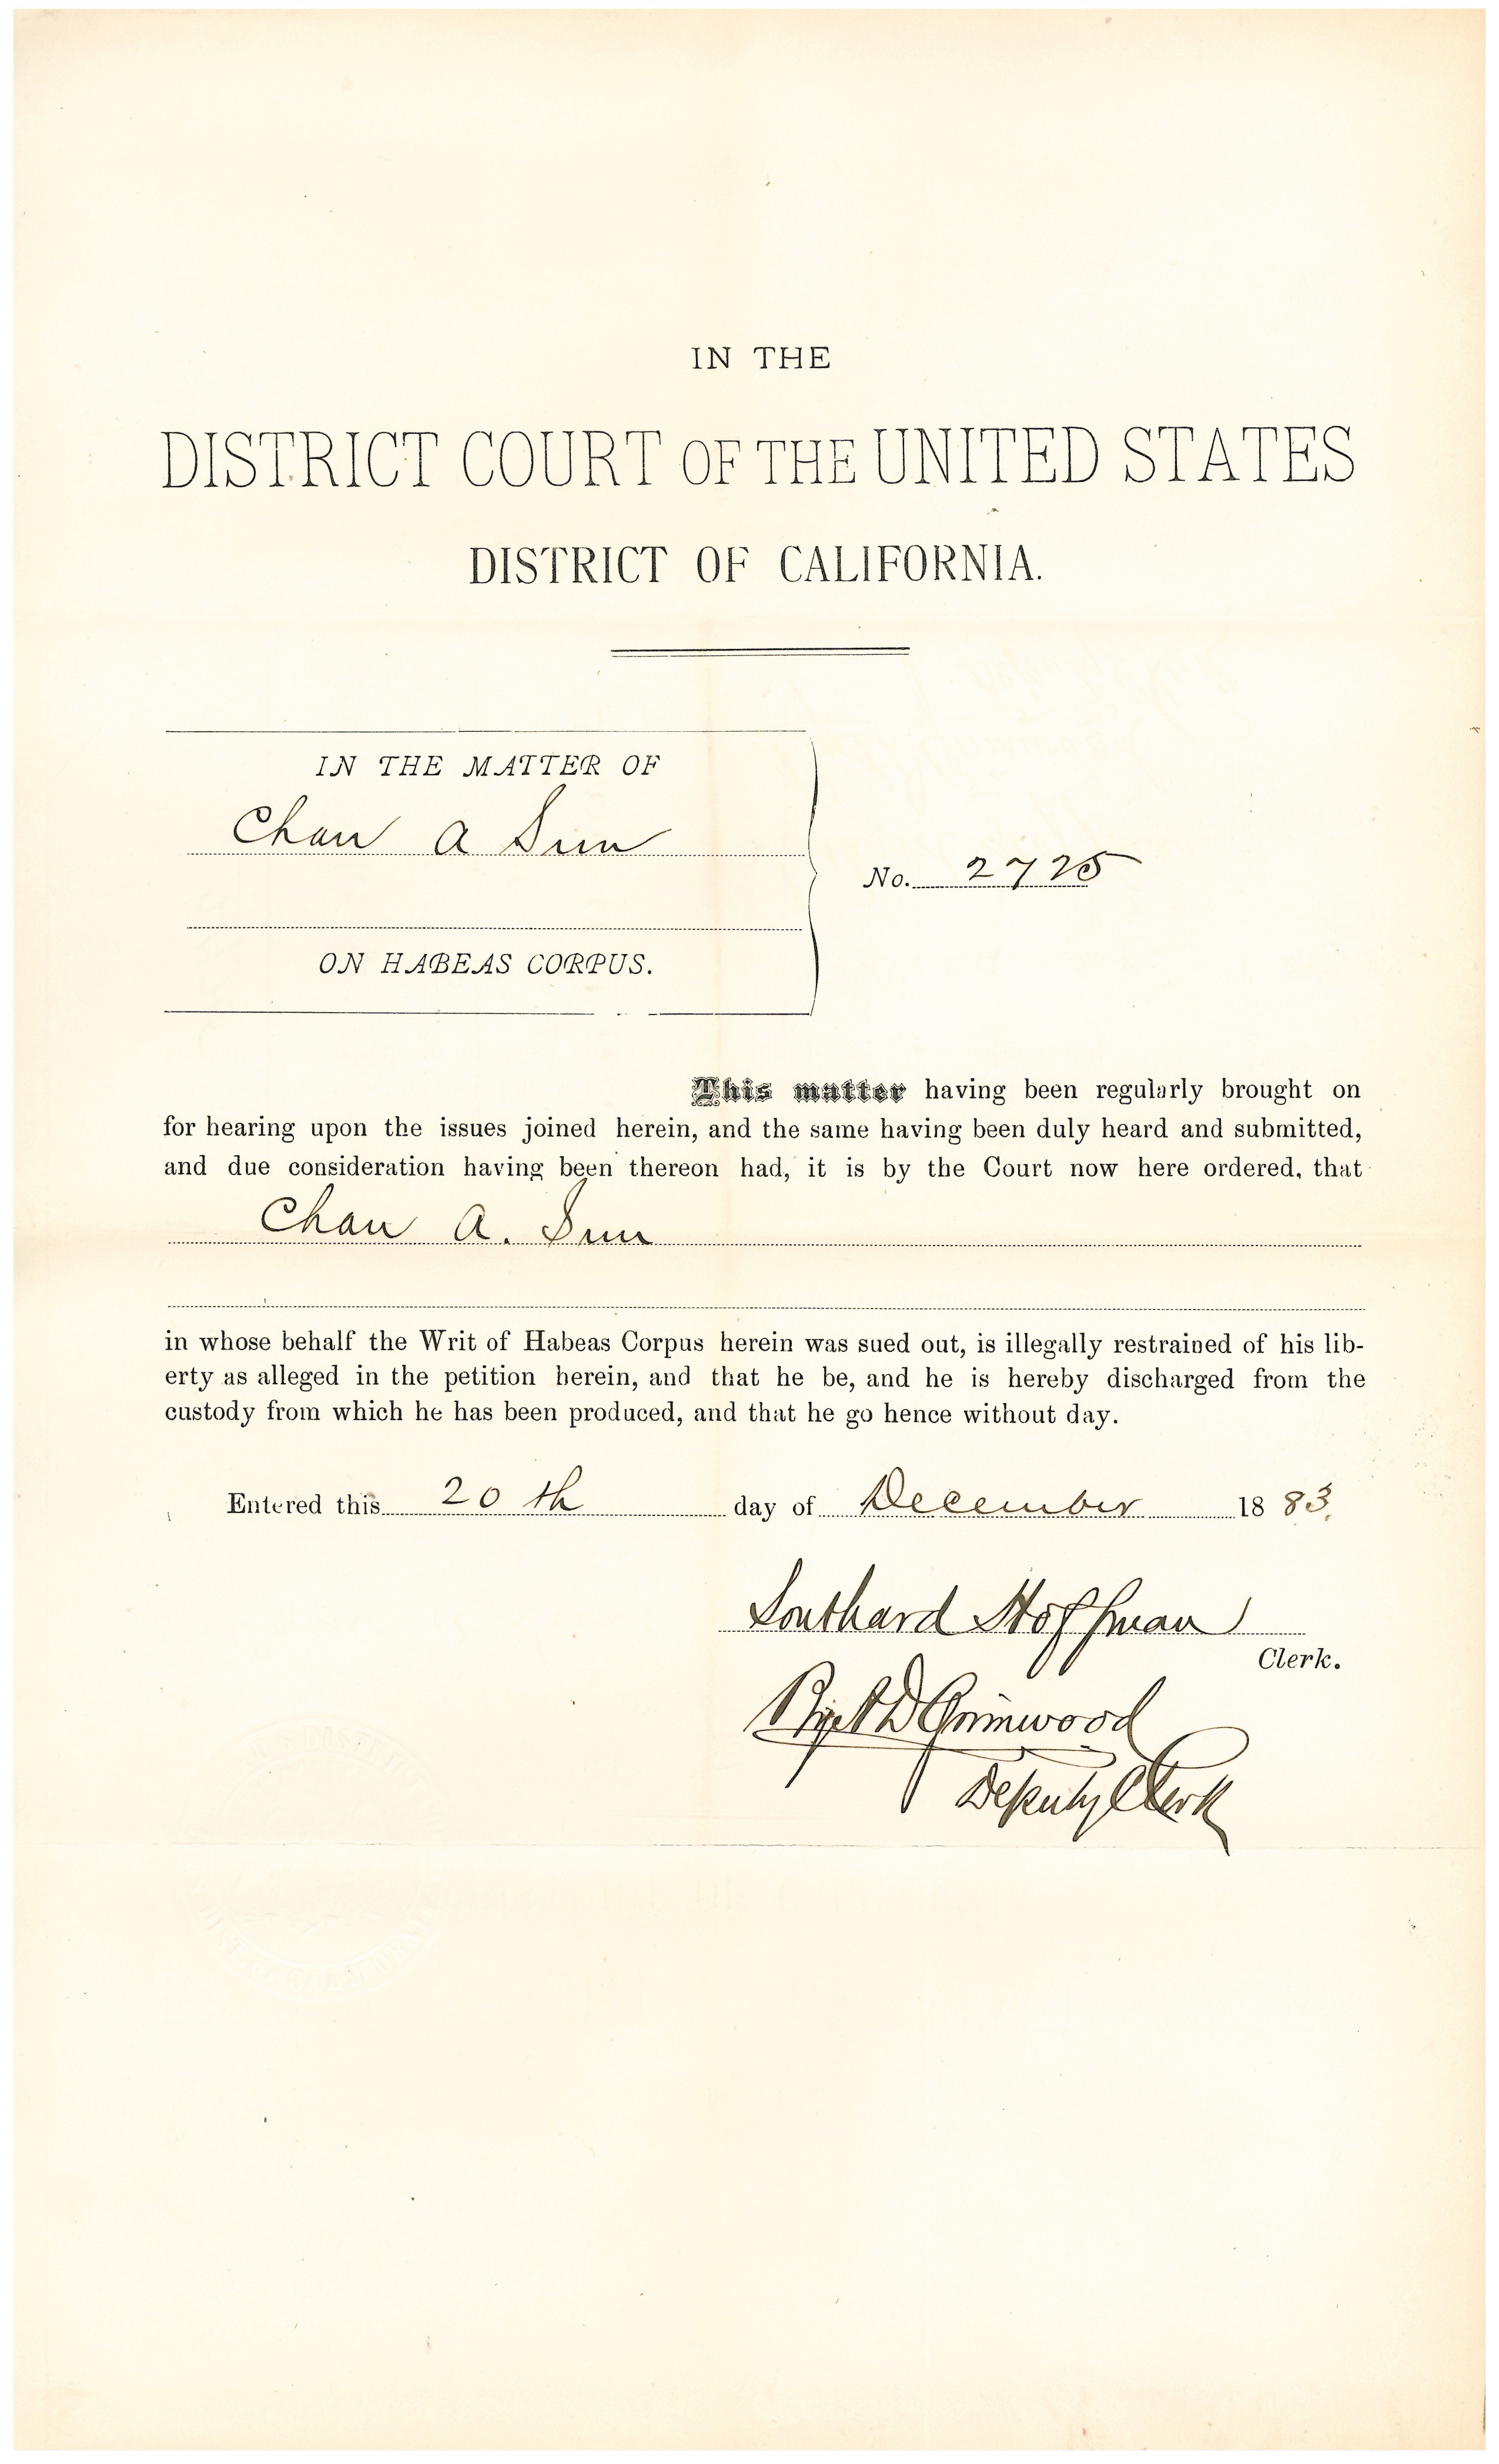 IN THE
DISTRICT COURT OF THE UNITED STATES
DISTRICT OF CALIFORNIA.
IN THE MATTER OF
Chan A Sun
No. 2725
ON HABEAS CORPUS.
This matter having been regularly brought on
for hearing upon the issues joined herein, and the same having been duly heard and submitted,
and due consideration having been thereon had, it is by the Court now here ordered, that
Chan A. Sun
in whose behalf the Writ of Habeas Corpus herein was sued out, is illegally restrained of his lib-
erty as alleged in the petition herein, and that he be, and he is hereby discharged from the
custody from which he has been produced, and that he go hence without day.
Entered this 20th day of December 1883.
Southard Hoffman
Clerk.
Grimwood
Deputy Clerk